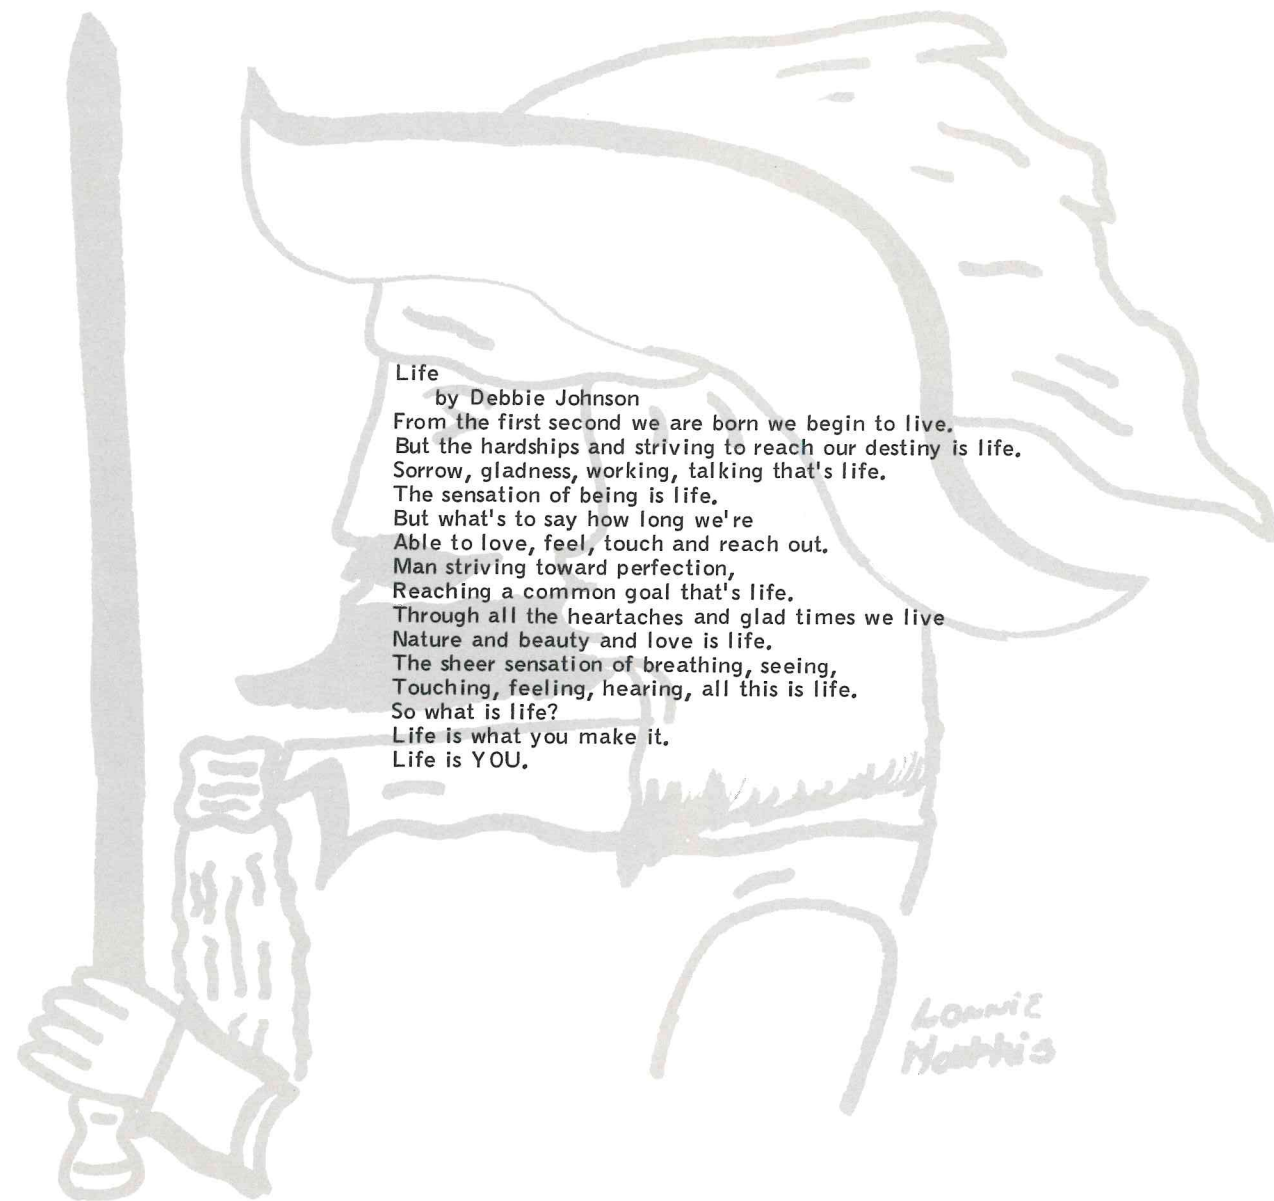 Life
by Debbie Johnson
From the first second we are born we begin to live.
But the hardships and striving to reach our destiny is life.
Sorrow, gladness, working, talking that's life.
The sensation of being is life.
But what's to say how long we're
Able to love, feel, touch and reach out.
Man striving toward perfection,
Reaching a common goal that's life.
Through all the heartaches and glad times we live
Nature and beauty and love is life.
The sheer sensation of breathing, seeing,
Touching, feeling, hearing, all this is life.
So what is life?
Life is what you make it.
Life is YOU.
Lonnie